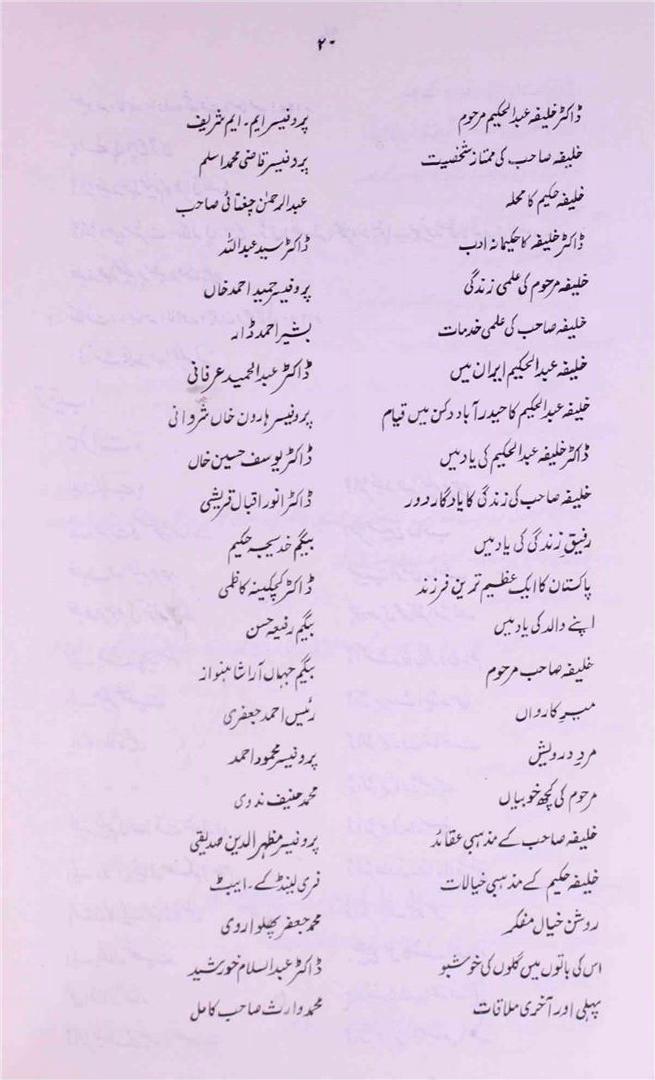 ۲۰
ڈاکٹر خلیفہ عبدالحکیم مرحوم پروفیسر ایم۔ ایم شریف
خلیفہ صاحب کی ممتاز شخصیت پروفیسر قاضی محمد اسلم
خلیفہ حکیم کا محلہ عبدالرحمٰن چغتائی صاحب
ڈاکٹر خلیفہ کا حکیمانہ ادب ڈاکٹر سید عبداللہ
خلیفہ مرحوم کی علمی زندگی پروفیسر حمید احمد خاں
خلیفہ صاحب کی علمی خدمات بشیر احمد ڈار
خلیفہ عبدالحکیم ایران میں ڈاکٹر عبدالحمید عرفانی
خلیفہ عبدالحکیم کا حیدرآباد دکن میں قیام پروفیسر ہارون خاں شروانی
ڈاکٹر خلیفہ عبدالحکیم کی یاد میں ڈاکٹر یوسف حسین خاں
خلیفہ صاحب کی زندگی کا یادگار دور ڈاکٹر انور اقبال قریشی
رفیقِ زندگی کی یاد میں بیگم خدیجہ حکیم
پاکستان کا ایک عظیم ترین فرزند ڈاکٹر کچکینہ کاظمی
اپنے والد کی یاد میں بیگم رفیعہ حسن
خلیفہ صاحب مرحوم بیگم جہاں آرا شاہنواز
میرِ کارواں رئیس احمد جعفری
مردِ درویش پروفیسر محمود احمد
مرحوم کی کچھ خوبیاں محمد حنیف ندوی
خلیفہ صاحب کے مذہبی عقائد پروفیسر مظہر الدین صدیقی
خلیفہ حکیم کے مذہبی خیالات فری لینڈ کے۔ ایبٹ
روشن خیال مفکر محمد جعفر پھلواروی
اس کی باتوں میں گلوں کی خوشبو ڈاکٹر عبدالسلام خورشید
پہلی اور آخری ملاقات محمد وارث صاحب کامل